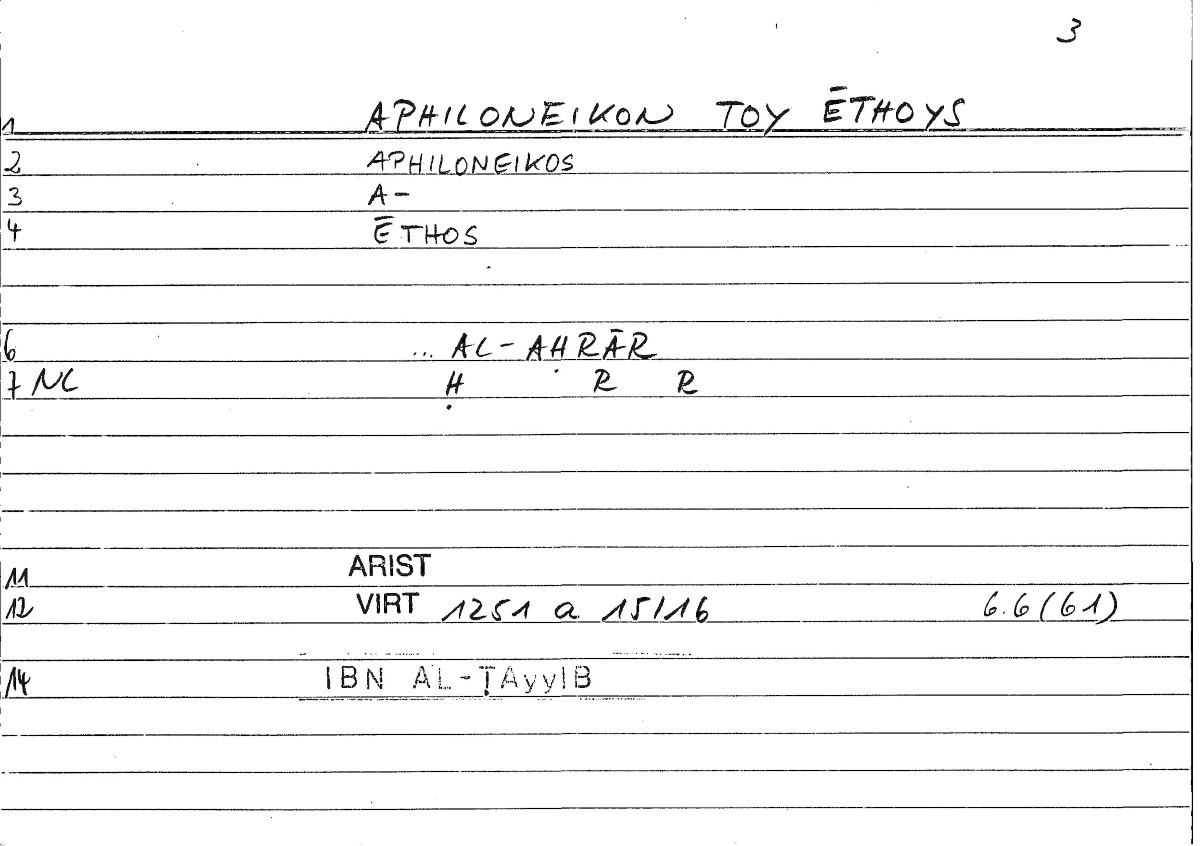 3
1 APHILONEIKON TOY ĒTHOYS
2 APHILONEIKOS
3 A-
4 ĒTHOS
6 ... AL-AḤRĀR
7 NL Ḥ R R
11 ARIST
12 VIRT 1251 a 15/16 6.6(61)
14 IBN AL-ṬAyyIB